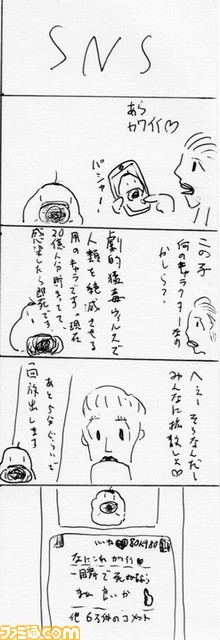 SNS
あら
カワイイ♡
パシャー!
この子
何のキャラクターなの
かしら?
劇的猛毒ウィルスで
人類を絶滅させる
用のキャラです。現在
20億人分貯まってて、
感染したら即死です。
へぇーそうなんだー
みんなに拡散しよ♡
あと5分ぐらいで
回放出します
いいね
なにこれカワイイ
一瞬で死ねるなら
まぁ良いか
他6万件のコメント
ファミ通.com